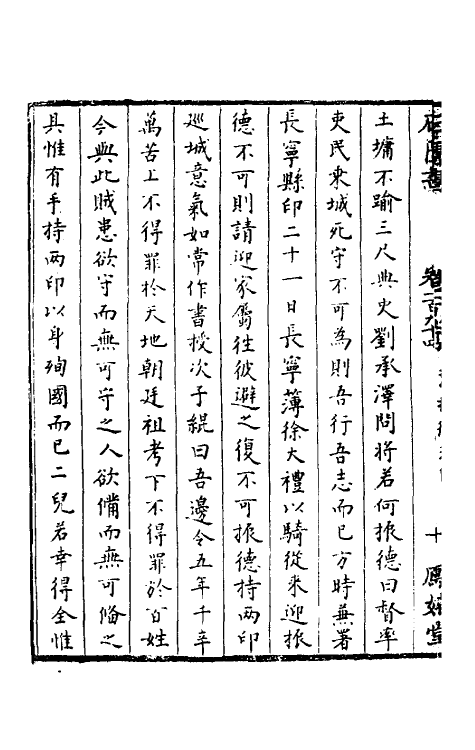 土墉不踰三尺典史劉承澤問將若何振德曰督率
吏民乘城死守不可為則吾行吾志而已方時兼署
長寧縣印二十一日長寧薄徐大禮以騎從來迎振
德不可則請迎家屬往彼避之復不可振德持两印
巡城意氣如常作書授次子緄曰吾邊令五年千辛
萬苦上不得罪於天地朝廷祖考下不得罪於百姓
今與此賊患欲守而無可守之人欲備而無可俻之
具惟有手持两印以身殉國而已二兒若幸得全惟